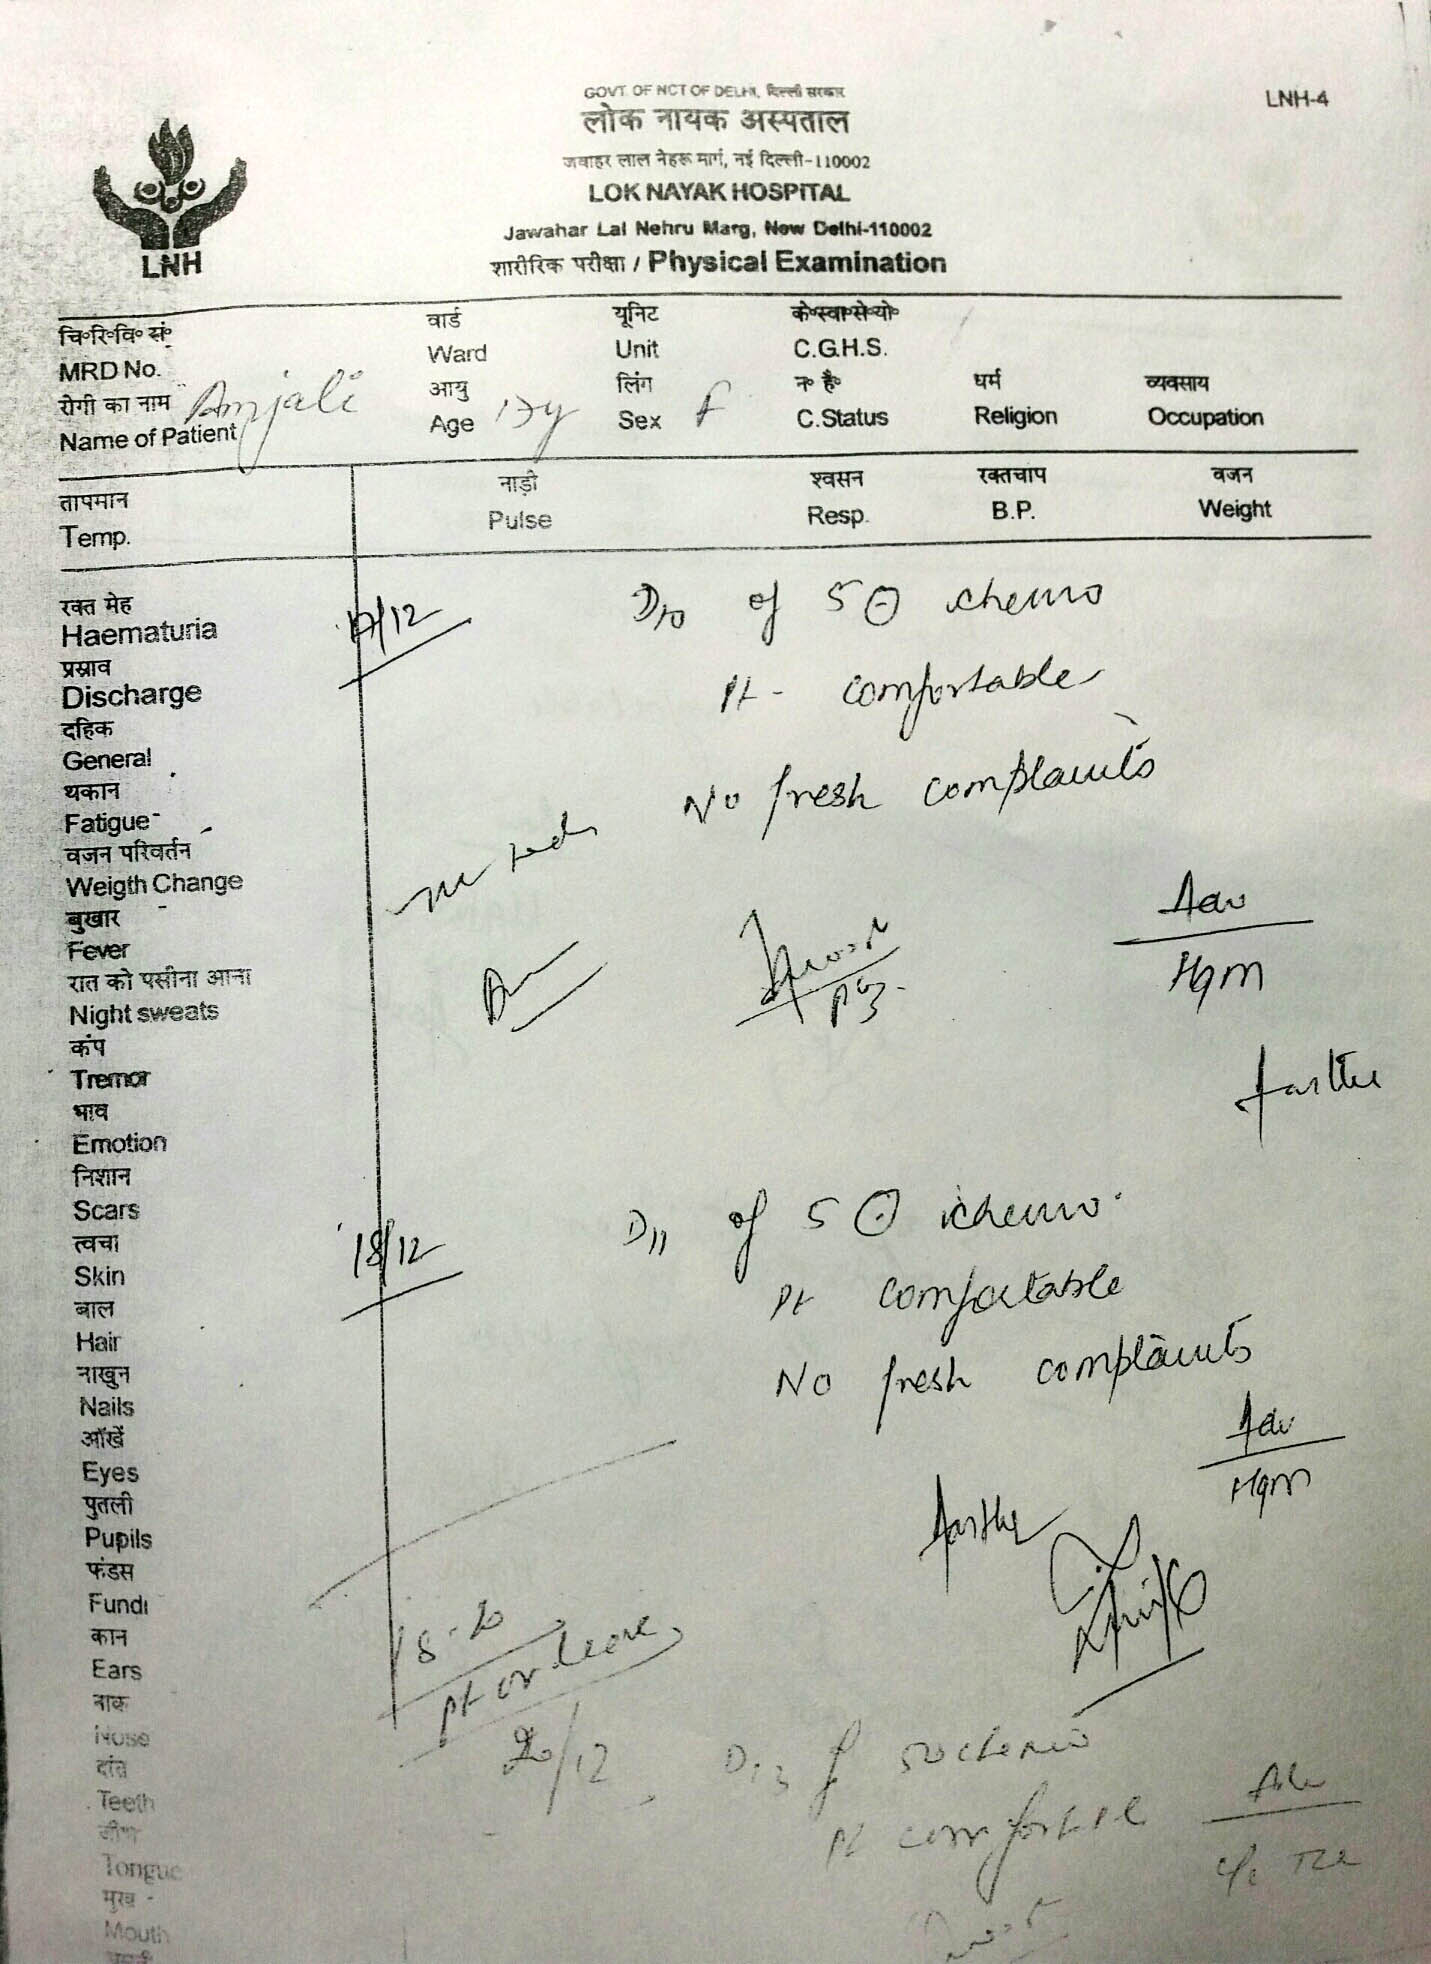 GOVT. OF NCT OF DELHI, दिल्ली सरकार
LNH-4
लोक नायक अस्पताल
जवाहर लाल नेहरू मार्ग, नई दिल्ली-110002
LOK NAYAK HOSPITAL
Jawahar Lal Nehru Marg, New Delhi-110002
LNH
शारीरिक परीक्षा / Physical Examination
चि०रि०वि० सं० वार्ड यूनिट के०स्वा०से०यो०
MRD No. Ward Unit C.G.H.S.
रोगी का नाम Anjali आयु लिंग न० है० धर्म व्यवसाय
Name of Patient Age Sex F C.Status Religion Occupation
तापमान नाड़ी श्वसन रक्तचाप वजन
Temp. Pulse Resp. B.P. Weight
रक्त मेह
Haematuria
17/12 D10 of 5 chemo
प्रस्राव
Discharge
Pt - comfortable
दहिक
General
थकान
Fatigue
No fresh complaints
वजन परिवर्तन
Weigth Change
बुखार
Adv
Fever
रात को पसीना आना
Night sweats
कंप
Tremor
भाव
Emotion
निशान
Scars
त्वचा
18/12 D11 of 5 chemo
Skin
बाल
Pt comfortable
Hair
नाखुन
No fresh complaints
Nails
आँखें
Adv
Eyes
पुतली
Pupils
फंडस
Fundi
कान
18-20
Ears
Pt on leave
नाक
Nose
20/12 D13 of chemo
दांत
Teeth
Pt comfortable
जीभ
Tongue
मुख
Mouth